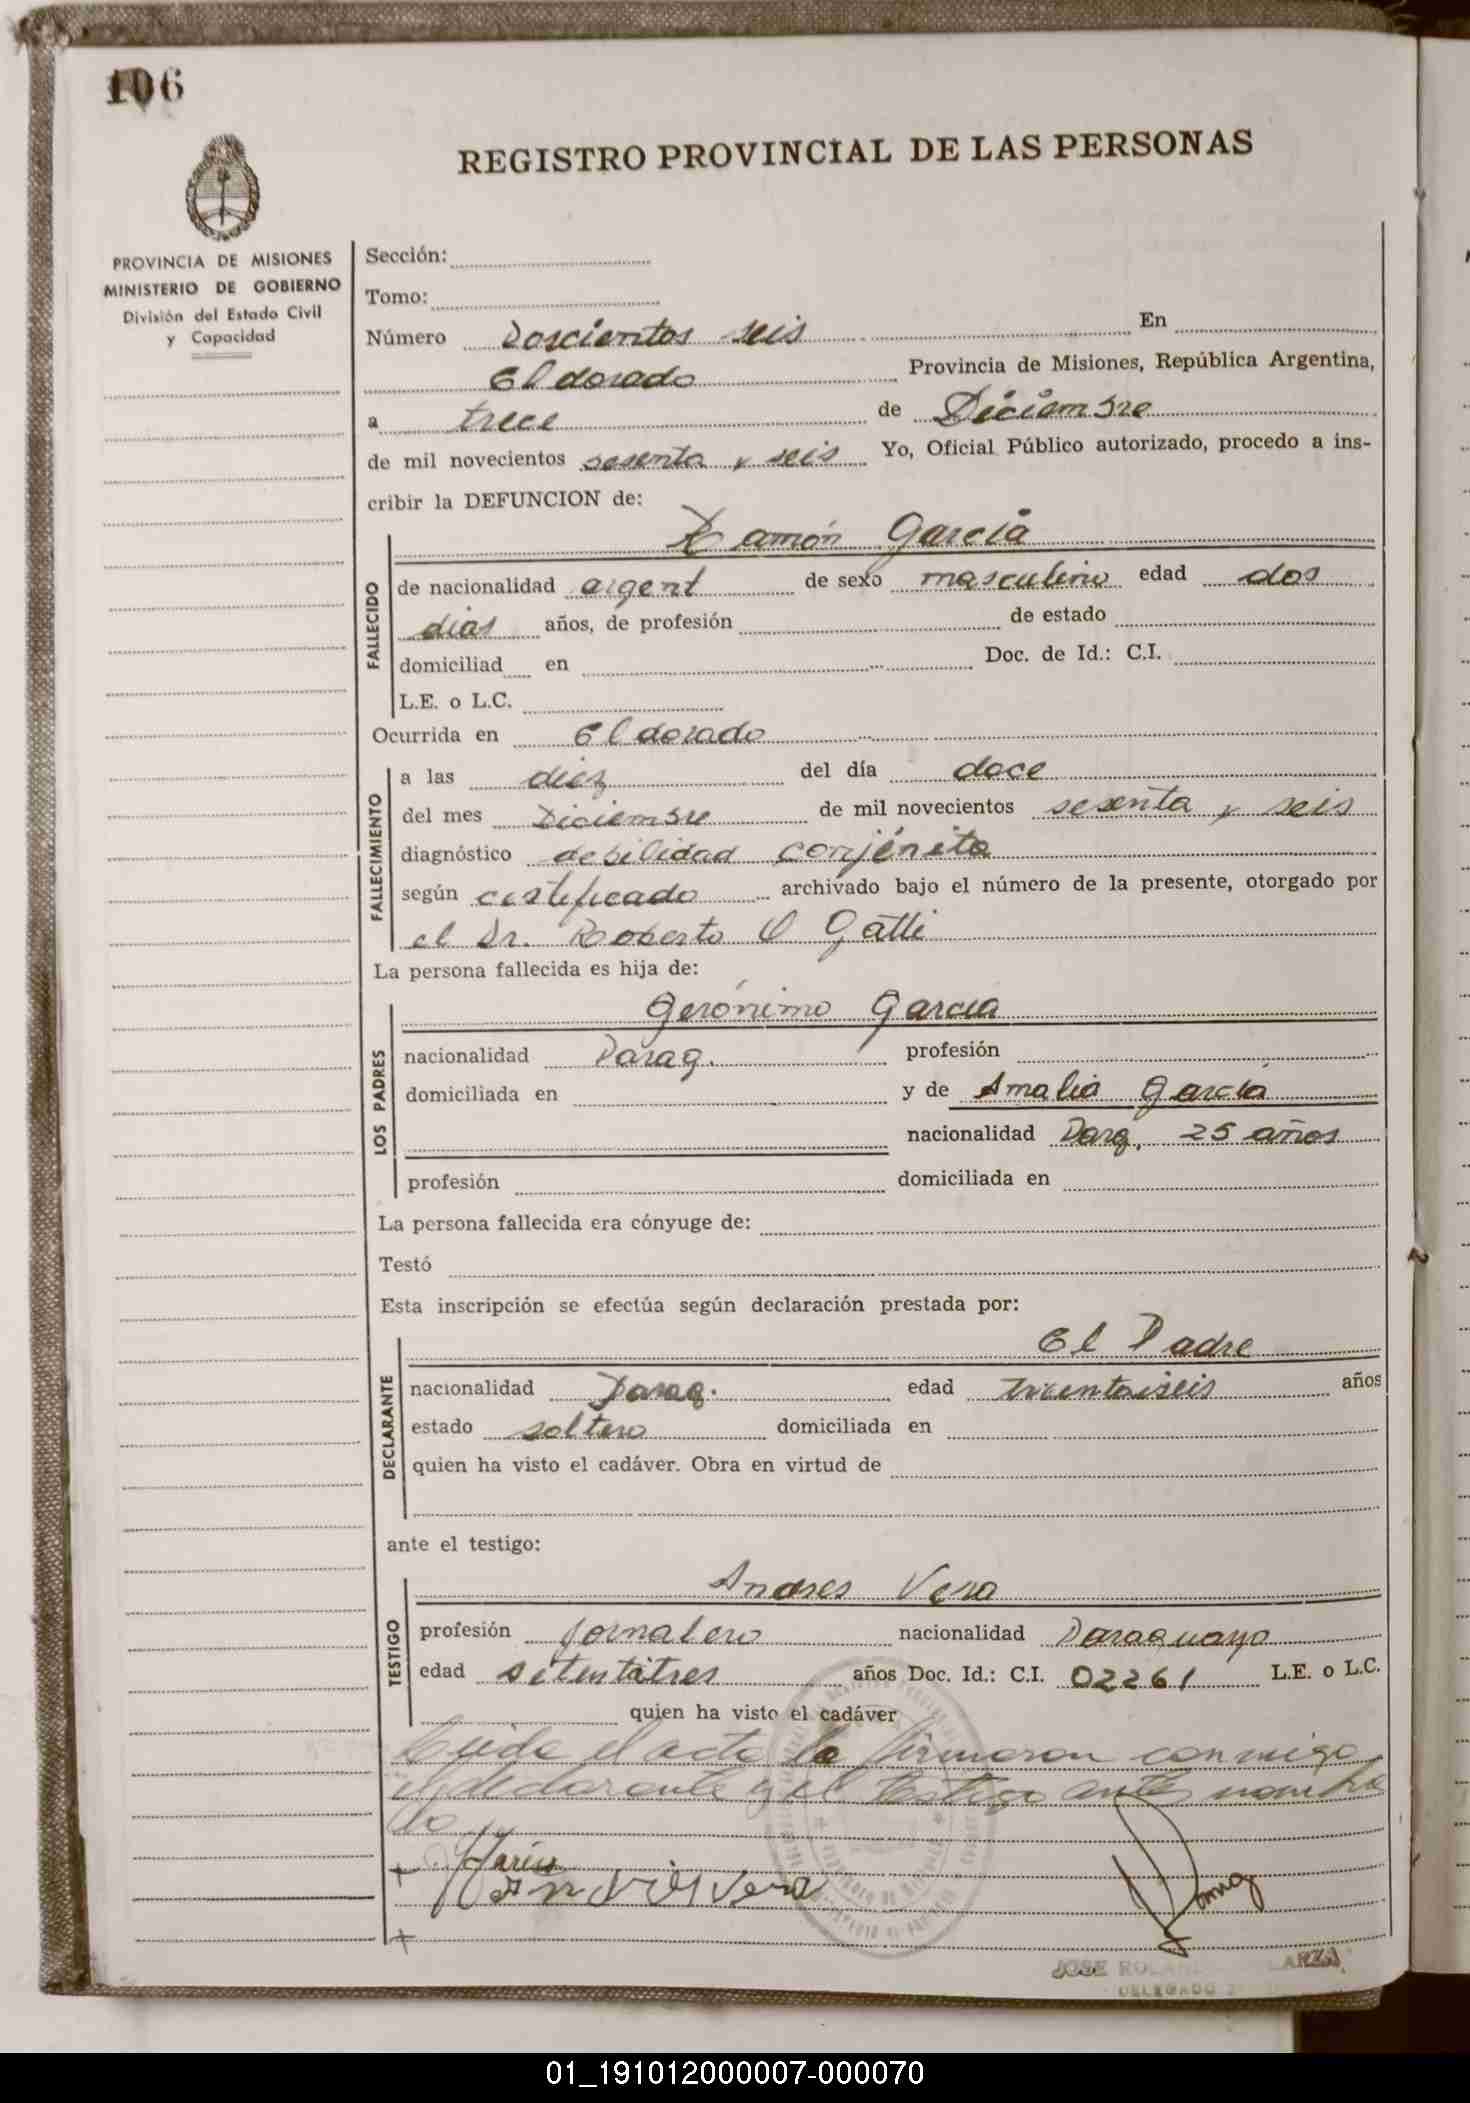 106
REGISTRO PROVINCIAL DE LAS PERSONAS
PROVINCIA DE MISIONES
MINISTERIO DE GOBIERNO
División del Estado Civil
y Capacidad
Sección:
Tomo:
Número Doscientos seis En
Eldorado Provincia de Misiones, República Argentina,
a trece de Diciembre
de mil novecientos sesenta y seis Yo, Oficial Público autorizado, procedo a ins-
cribir la DEFUNCION de:
Ramón García
FALLECIDO
de nacionalidad argent de sexo masculino edad dos
dias años, de profesión de estado
domiciliad en Doc. de Id.: C.I.
L.E. o L.C.
Ocurrida en Eldorado
FALLECIMIENTO
a las diez del día doce
del mes Diciembre de mil novecientos sesenta y seis
diagnóstico debilidad conjénita
según certificado archivado bajo el número de la presente, otorgado por
el Dr. Roberto O Gatti
La persona fallecida es hija de:
LOS PADRES
Gerónimo García
nacionalidad Parag. profesión
domiciliada en y de Amalia García
nacionalidad Parag, 25 años
profesión domiciliada en
La persona fallecida era cónyuge de:
Testó
Esta inscripción se efectúa según declaración prestada por:
DECLARANTE
El Padre
nacionalidad Parag. edad treintaiseis años
estado soltero domiciliada en
quien ha visto el cadáver. Obra en virtud de
ante el testigo:
TESTIGO
Andres Vera
profesión Jornalero nacionalidad Paraguayo
edad setentaitres años Doc. Id.: C.I. 02261 L.E. o L.C.
quien ha visto el cadáver
el acto la firmaron conmigo
el declarante y el testigo ante nombra
do
Andrés Vera
JOSE
DELEGADO
01_191012000007-000070